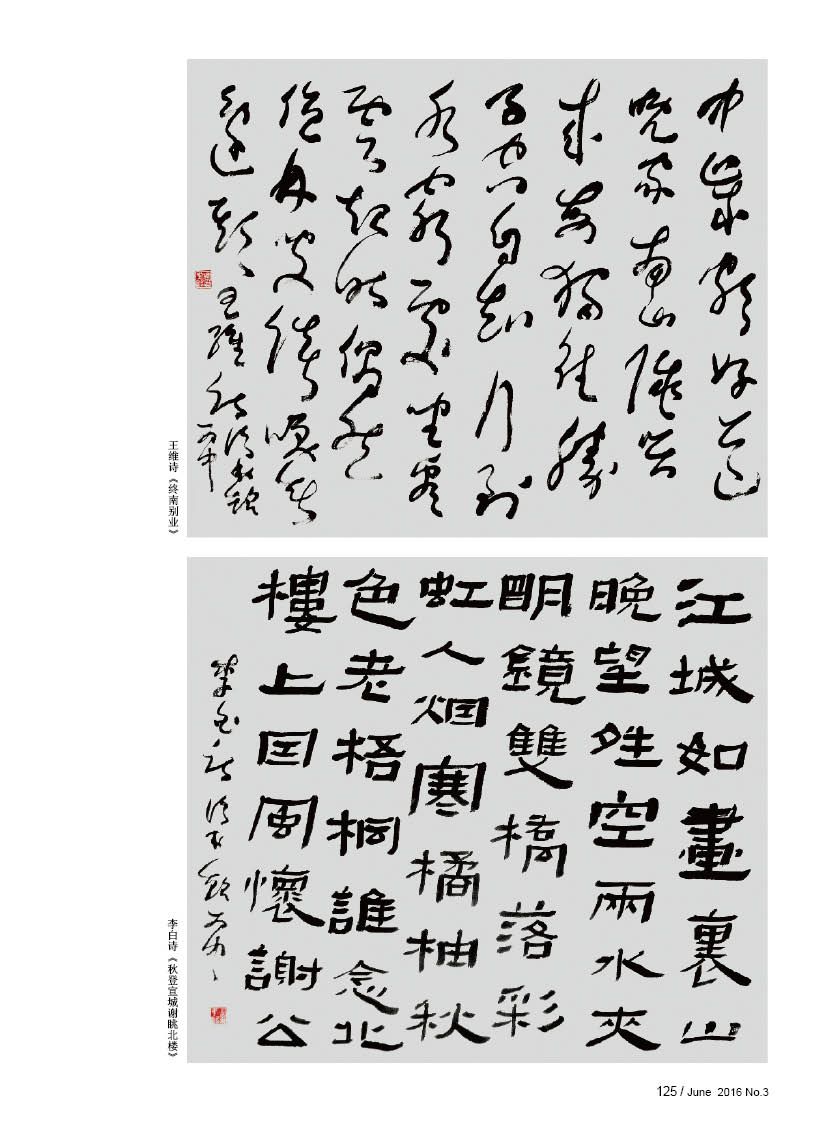 中歲頗好道
晚家南山陲興
來每獨往勝
事空自知行到
水窮處坐看
雲起時偶然
值林叟談笑無
還期
王維詩
丙申
王维诗《终南别业》
江城如畫裏山
晚望夝空兩水夾
明鏡雙橋落彩
虹人烟寒橘柚秋
色老梧桐誰念北
樓上回風懷謝公
李白詩
李白诗《秋登宣城谢眺北楼》
125 / June 2016 No.3